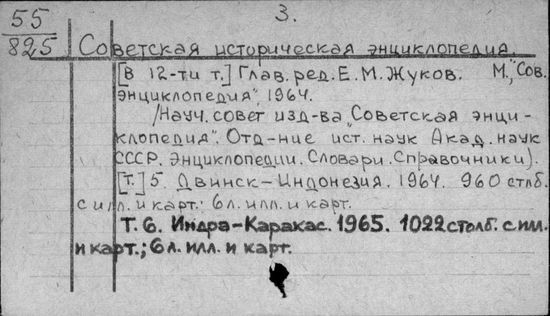 3.
55
825
Советская историческая энциклопедия.
[в 12-ти т.] Глав. ред. Е. М. Жуков. М., "Сов.
энциклопедия", 1964.
/Науч. совет изд-ва "Советская энци-
клопедия". Отд-ние ист. наук Акад. наук
СССР. Энциклопедии. Словари. Справочники).
[т.] 5. Двинск-Индонезия. 1964. 960 стлб.
с илл. и карт.; 6 л. илл. и карт.
Т. 6. Индра-Каракас. 1965. 1022 столб. с илл.
и карт.; 6 л. илл. и карт.